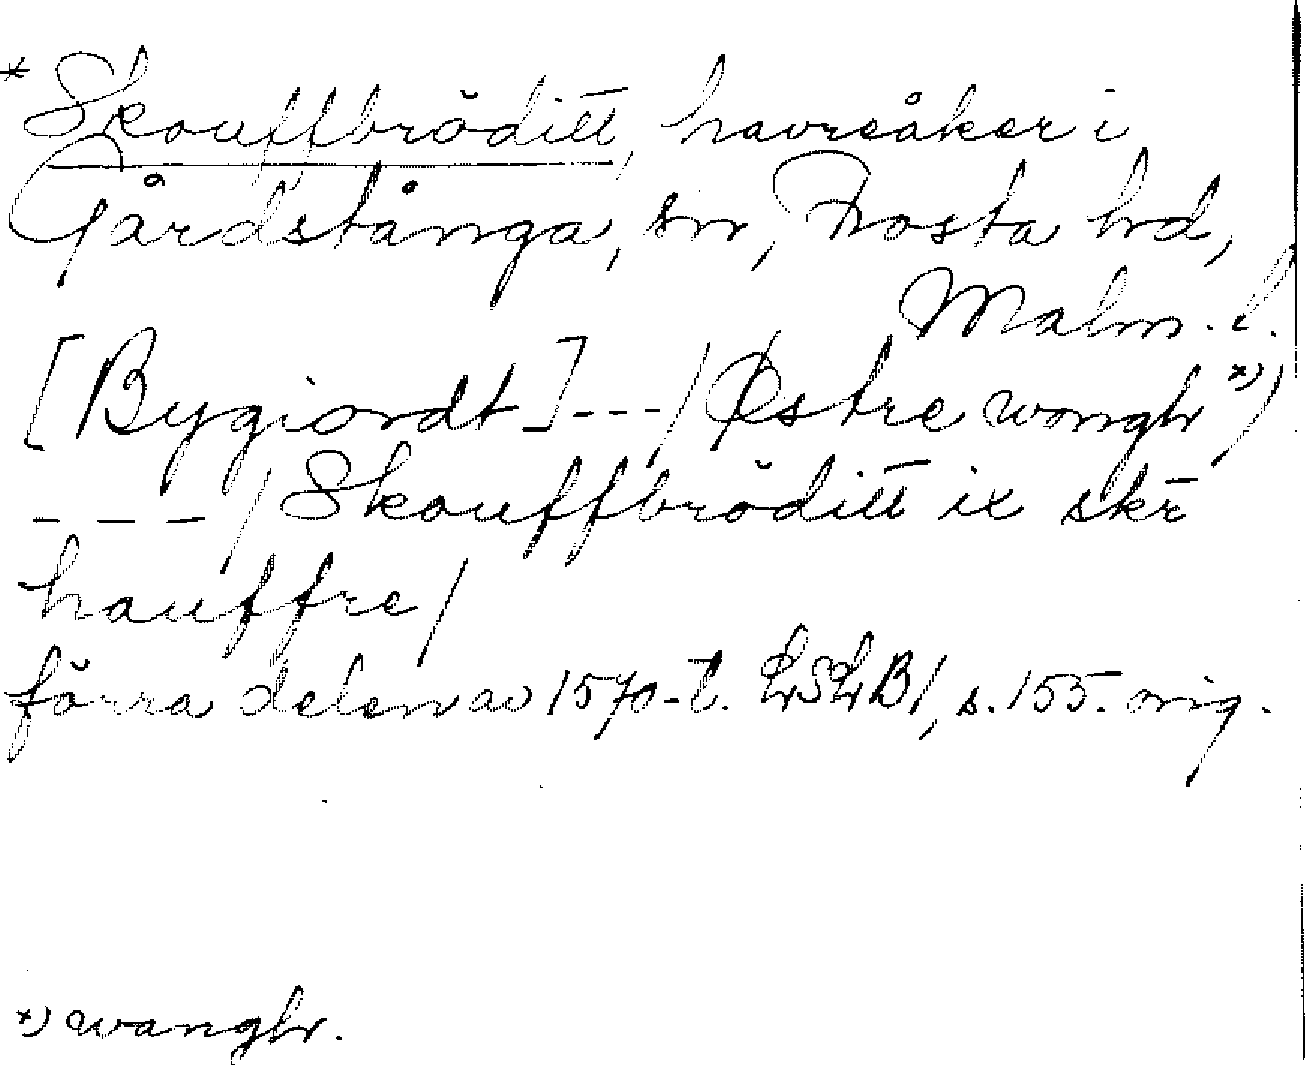 * Skouffbröditt, havreåker i
Gårdstånga, sn, Frosta hd,
Malm. l.
[Bygiordt] --- / Østre wongh *) /
---- / Skouffbröditt ix skr̄
hauffre /
förra delen av 1570-t. LSLB1, s. 155. orig.
*) wangh.